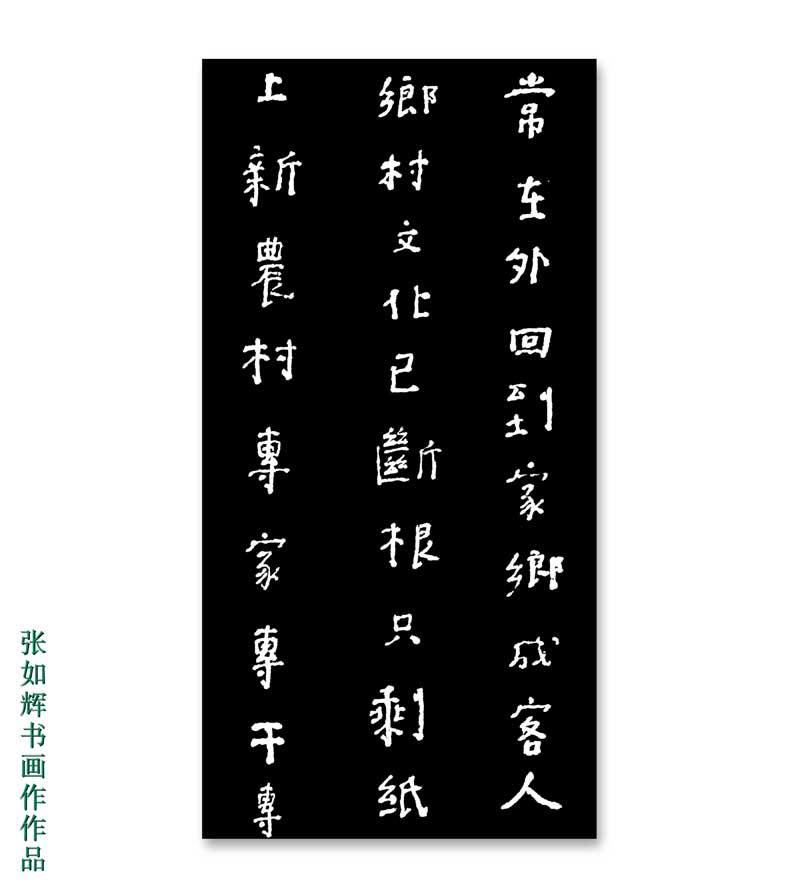 常在外回到家鄉成客人
鄉村文化已斷根只剩紙
上新農村專家專干專
张如辉书画作作品